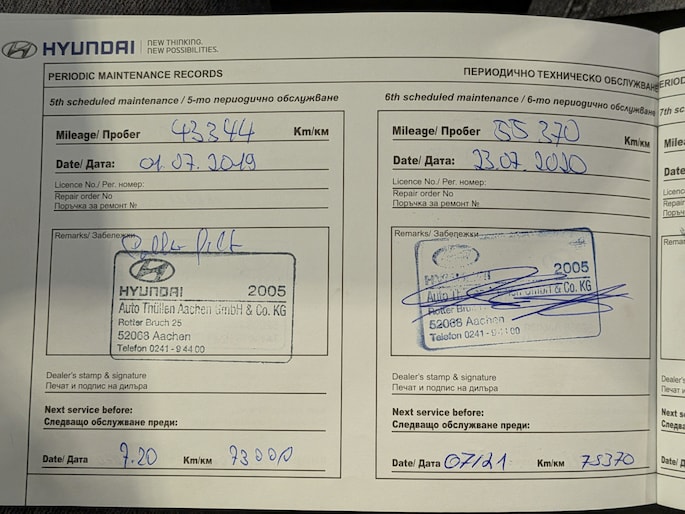 HYUNDAI
NEW THINKING.
NEW POSSIBILITIES.
PERIODIC MAINTENANCE RECORDS
ПЕРИОДИЧНО ТЕХНИЧЕСКО ОБСЛУЖВАНЕ
5th scheduled maintenance / 5-то периодично обслужване
Mileage/ Пробег 43344 Km/км
Date/ Дата: 01.07.2019
Licence No./ Рег. номер:
Repair order No
Поръчка за ремонт №
Remarks/ Забележки
HYUNDAI 2005
Auto Thüllen Aachen GmbH & Co. KG
Rotter Bruch 25
52068 Aachen
Telefon 0241 - 9 44 00
Dealer's stamp & signature
Печат и подпис на дилъра
Next service before:
Следващо обслужване преди:
Date/ Дата 7.20 Km/км 73000
6th scheduled maintenance / 6-то периодично обслужване
Mileage/ Пробег 55 370 Km/км
Date/ Дата: 23.07.2020
Licence No./ Рег. номер:
Repair order No
Поръчка за ремонт №
Remarks/ Забележки
HYUNDAI 2005
Auto Thüllen Aachen GmbH & Co. KG
Rotter Bruch
52068 Aachen
Telefon 0241 - 9 44 00
Dealer's stamp & signature
Печат и подпис на дилъра
Next service before:
Следващо обслужване преди:
Date/ Дата 07/21 Km/км 75370
7th